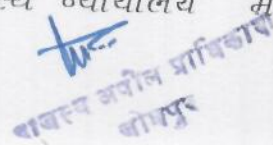 न्यायालय
राजस्व अपील प्राधिकारी
जोधपुर